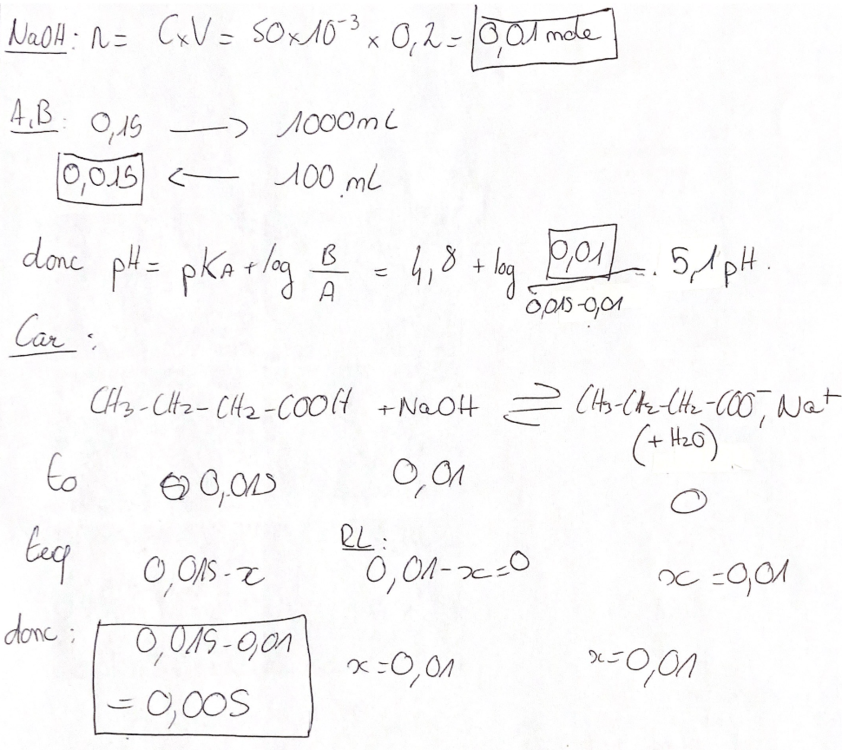 NaOH : n = C×V = 50×10⁻³ × 0,2 = 0,01 mole
A,B : 0,15 → 1000mL
0,015 ← 100 mL
donc pH = pKA + log B/A = 4,8 + log 0,01/0,015-0,01 = 5,1 pH.
Car :
CH3-CH2-CH2-COOH + NaOH ⇌ CH3-CH2-CH2-COO⁻, Na⁺
(+ H2O)
t0 0,015 0,01 0
teq 0,015-x RL : 0,01-x=0 x=0,01
donc : 0,015-0,01 x=0,01 x=0,01
= 0,005